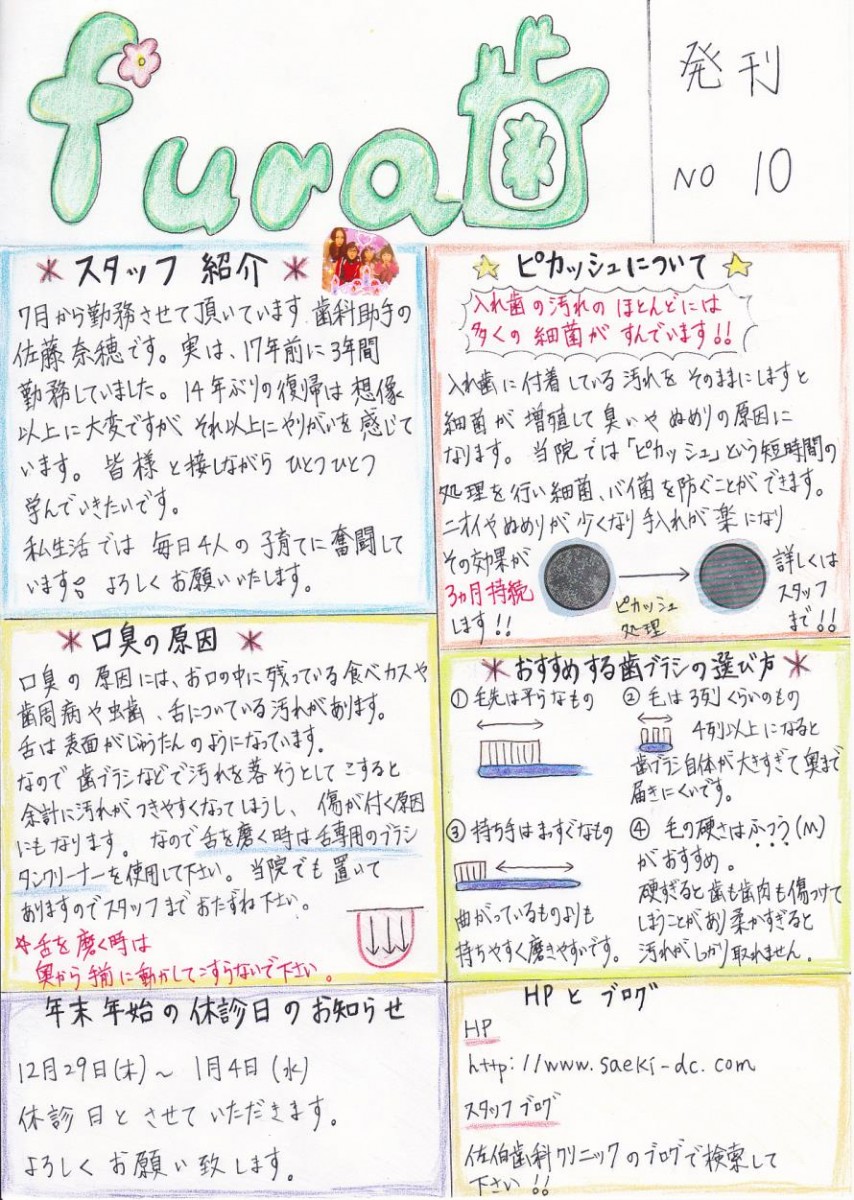 fura歯
発刊
NO 10
スタッフ 紹介
7月から勤務させて頂いています 歯科助手の
佐藤 奈穂です。実は、17年前に3年間
勤務していました。14年ぶりの復帰は想像
以上に大変ですが それ以上にやりがいを感じて
います。皆様と接しながら ひとつひとつ
学んでいきたいです。
私生活では 毎日4人の 子育てに奮闘して
います。よろしく お願いいたします。
ピカッシュについて
入れ歯の汚れの ほとんどには
多くの 細菌が すんでいます!!
入れ歯に付着している汚れを そのままにしますと
細菌が 増殖して臭いや ぬめりの原因に
なります。当院では「ピカッシュ」という短時間の
処理を行い細菌、バイ菌を防ぐことができます。
ニオイやぬめりが少くなり手入れが楽になり
その効果が
3ヵ月持続
します!!
ピカッシュ
処理
詳しくは
スタッフ
まで!!
口臭の原因
口臭の原因には、お口の中に残っている食べカスや
歯周病や虫歯、舌についている汚れがあります。
舌は表面がじゅうたんのようになっています。
なので 歯ブラシなどで汚れを落そうとして こすると
余計に汚れがつきやすくなってしまうし、傷が付く原因
にもなります。なので舌を磨く時は舌専用のブラシ
タンクリーナーを使用して下さい。当院でも置いて
ありますのでスタッフまで おたずね下さい。
☆舌を磨く時は
奥から手前に動かしてこすらないで下さい。
おすすめする歯ブラシの選び方
① 毛先は平らなもの
② 毛は3列くらいのもの
4列以上になると
歯ブラシ自体が大きすぎて奥まで
届きにくいです。
③ 持ち手はまっすぐなもの
曲がっているものよりも
持ちやすく磨きやすいです。
④ 毛の硬さはふつう(M)
がおすすめ。
硬すぎると歯も歯肉も傷つけて
しまうことがあり柔かすぎると
汚れがしっかり取れません。
年末年始の休診日のお知らせ
12月29日(木)～ 1月4日(水)
休診日とさせていただきます。
よろしくお願い致します。
HPとブログ
HP
http://www.saeki-dc.com
スタッフブログ
佐伯歯科クリニックのブログで検索して
下さい!!